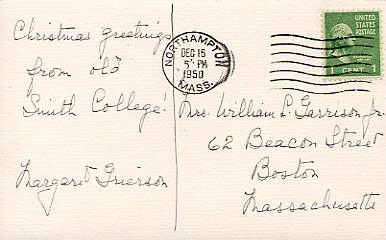 Christmas greetings
from old
Smith College!
Margaret Grierson
NORTHAMPTON
DEC 16
5 - PM
1950
MASS.
UNITED
STATES
POSTAGE
1 CENT 1
Mrs. William L. Garrison, Jr.
62 Beacon Street
Boston
Massachusetts